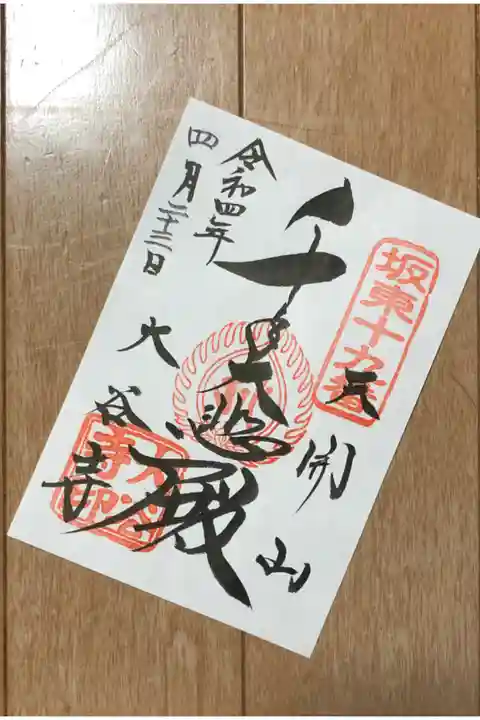 坂東十九番
天開山
千手大悲殿
令和四年
四月二十三日
大谷寺
大谷寺印